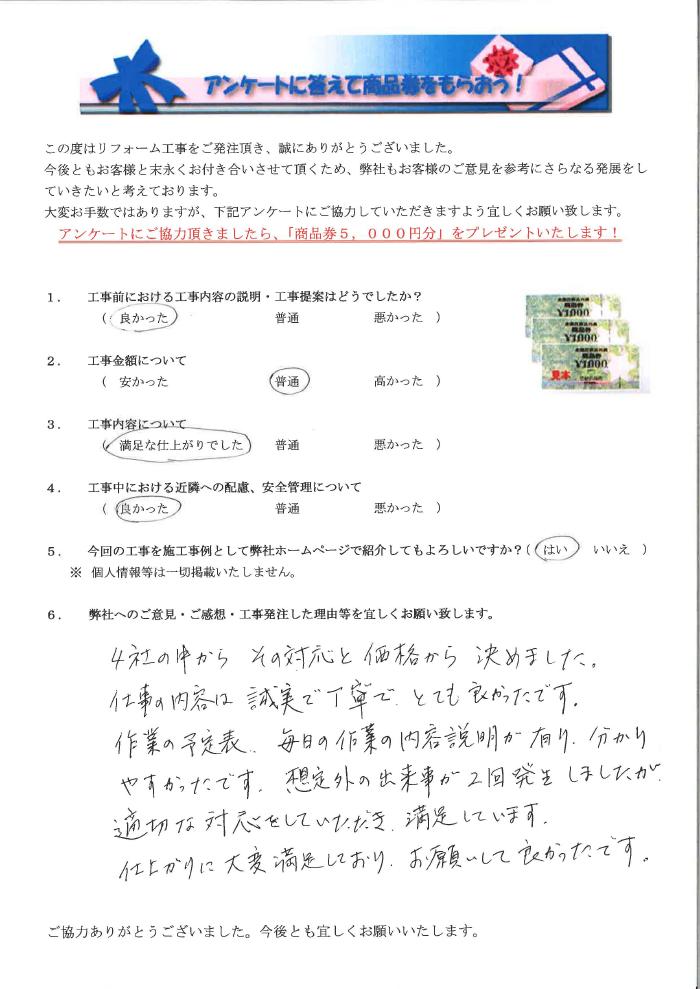 アンケートに答えて商品券をもらおう！
この度はリフォーム工事をご発注頂き、誠にありがとうございました。
今後ともお客様と末永くお付き合いさせて頂くため、弊社もお客様のご意見を参考にさらなる発展をし
ていきたいと考えております。
大変お手数ではありますが、下記アンケートにご協力していただきますよう宜しくお願い致します。
アンケートにご協力頂きましたら、「商品券５，０００円分」をプレゼントいたします！
１． 工事前における工事内容の説明・工事提案はどうでしたか？
（ 良かった 普通 悪かった ）
商品券
¥1,000
商品券
¥1,000
商品券
¥1,000
見本
２． 工事金額について
（ 安かった 普通 高かった ）
３． 工事内容について
（ 満足な仕上がりでした 普通 悪かった ）
４． 工事中における近隣への配慮、安全管理について
（ 良かった 普通 悪かった ）
５． 今回の工事を施工事例として弊社ホームページで紹介してもよろしいですか？（ はい いいえ ）
※ 個人情報等は一切掲載いたしません。
６． 弊社へのご意見・ご感想・工事発注した理由等を宜しくお願い致します。
4社の中から その対応と価格から 決めました。
仕事の内容は 誠実で丁寧で、とても良かったです。
作業の予定表、毎日の作業の内容説明が有り、分かり
やすかったです。想定外の出来事が2回発生しましたが、
適切な対応をしていただき、満足しています。
仕上がりに大変満足しており、お願いして良かったです。
ご協力ありがとうございました。今後とも宜しくお願いいたします。